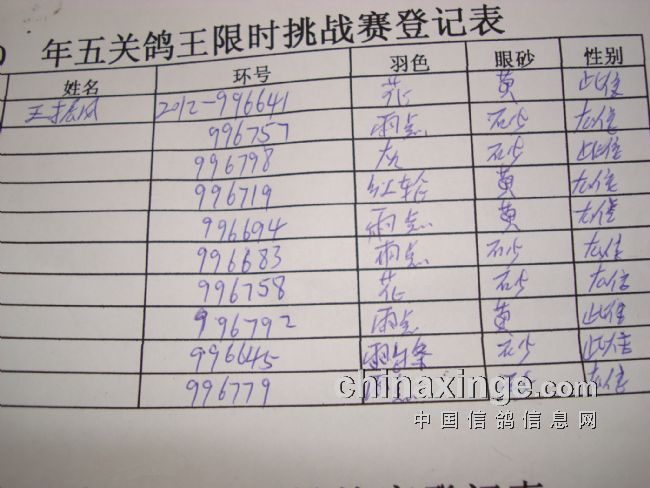 年五关鸽王限时挑战赛登记表
姓名 环号 羽色 眼砂 性别
王振风 2012-996641 花 黄 此隹
996757 雨点 石少 左隹
996798 灰 石少 此隹
996719 红轮 黄 左隹
996694 雨点 黄 左隹
996683 雨点 石少 左隹
996758 花 石少 左隹
996792 雨点 黄 此隹
996645 石少 此隹
996779 左隹
chinaxinge.com
中国信鸽信息网